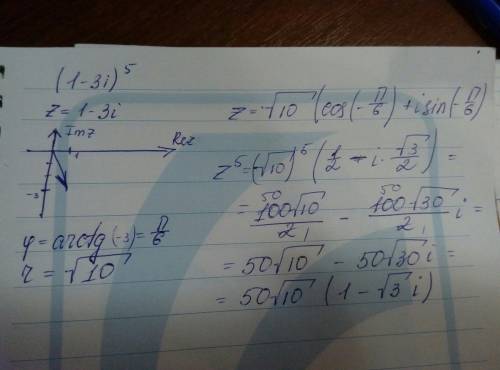 (1-3i)^5
z = 1-3i
Imz
Rez
1
-3
φ = arctg(-3) = π/6
r = √10
z = √10 (cos(-π/6) + i sin(-π/6)
z^5 = (√10)^5 (1/2 - i · √3/2) =
= 100√10/2 - 100√30/2 i =
50 50
1 1
= 50√10 - 50√30 i =
= 50√10 (1 - √3 i)